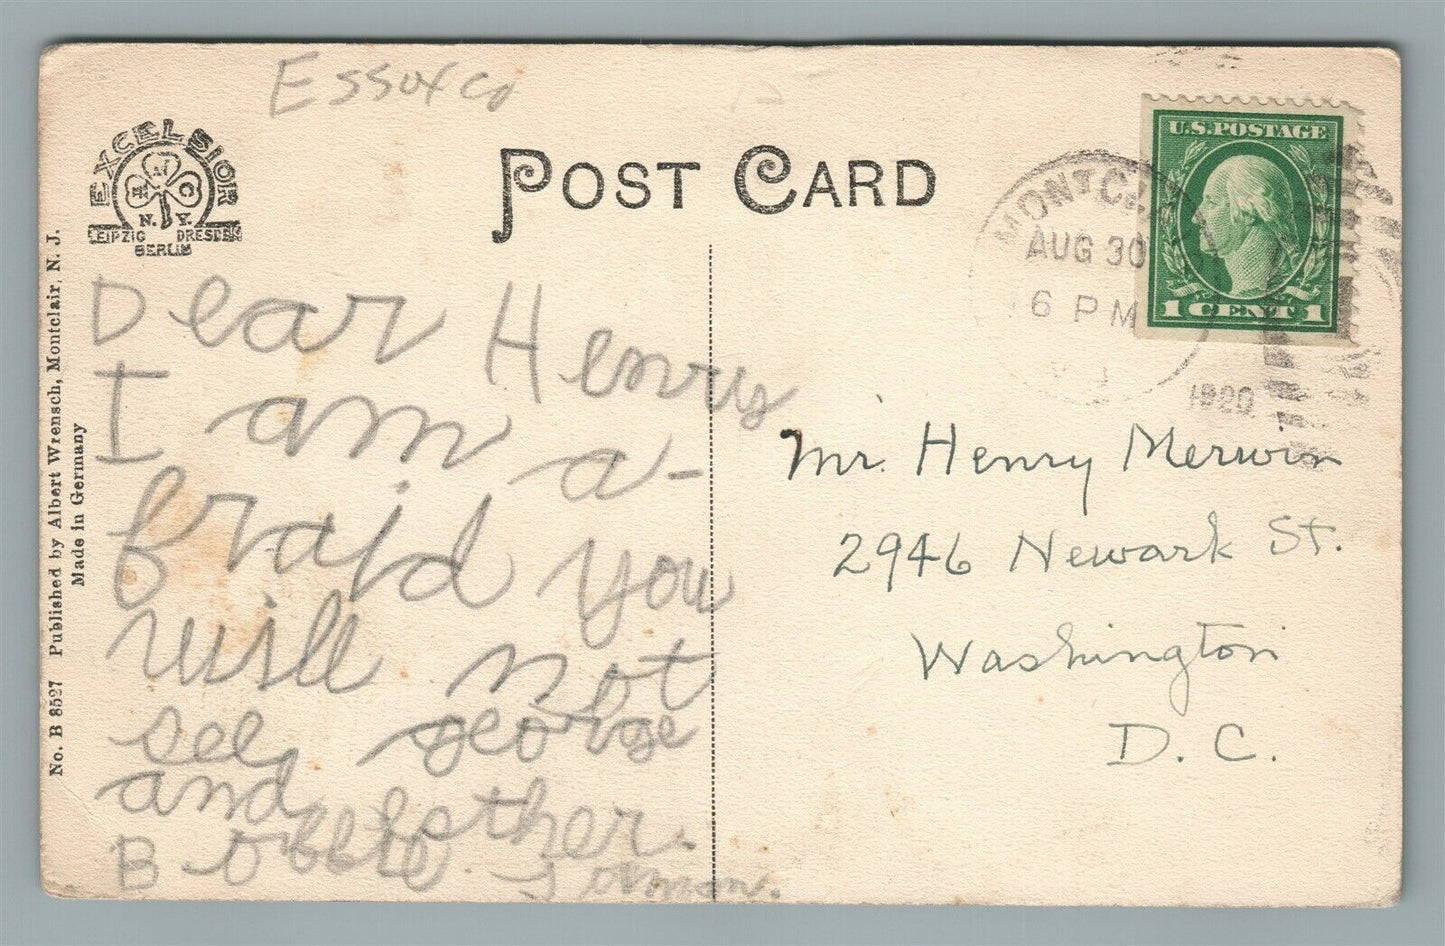 Essex Co
EXCELSIOR
N. Y.
LEIPZIG DRESDEN
BERLIN
POST CARD
U.S. POSTAGE
1 CENT 1
AUG 30
6 PM
1920
No. B 8527 Published by Albert Wrensch, Montclair, N. J.
Made in Germany
Dear Henry
I am a-
fraid you
will not
see george
and esther.
Bobbie
Mr. Henry Merwin
2946 Newark St.
Washington
D. C.